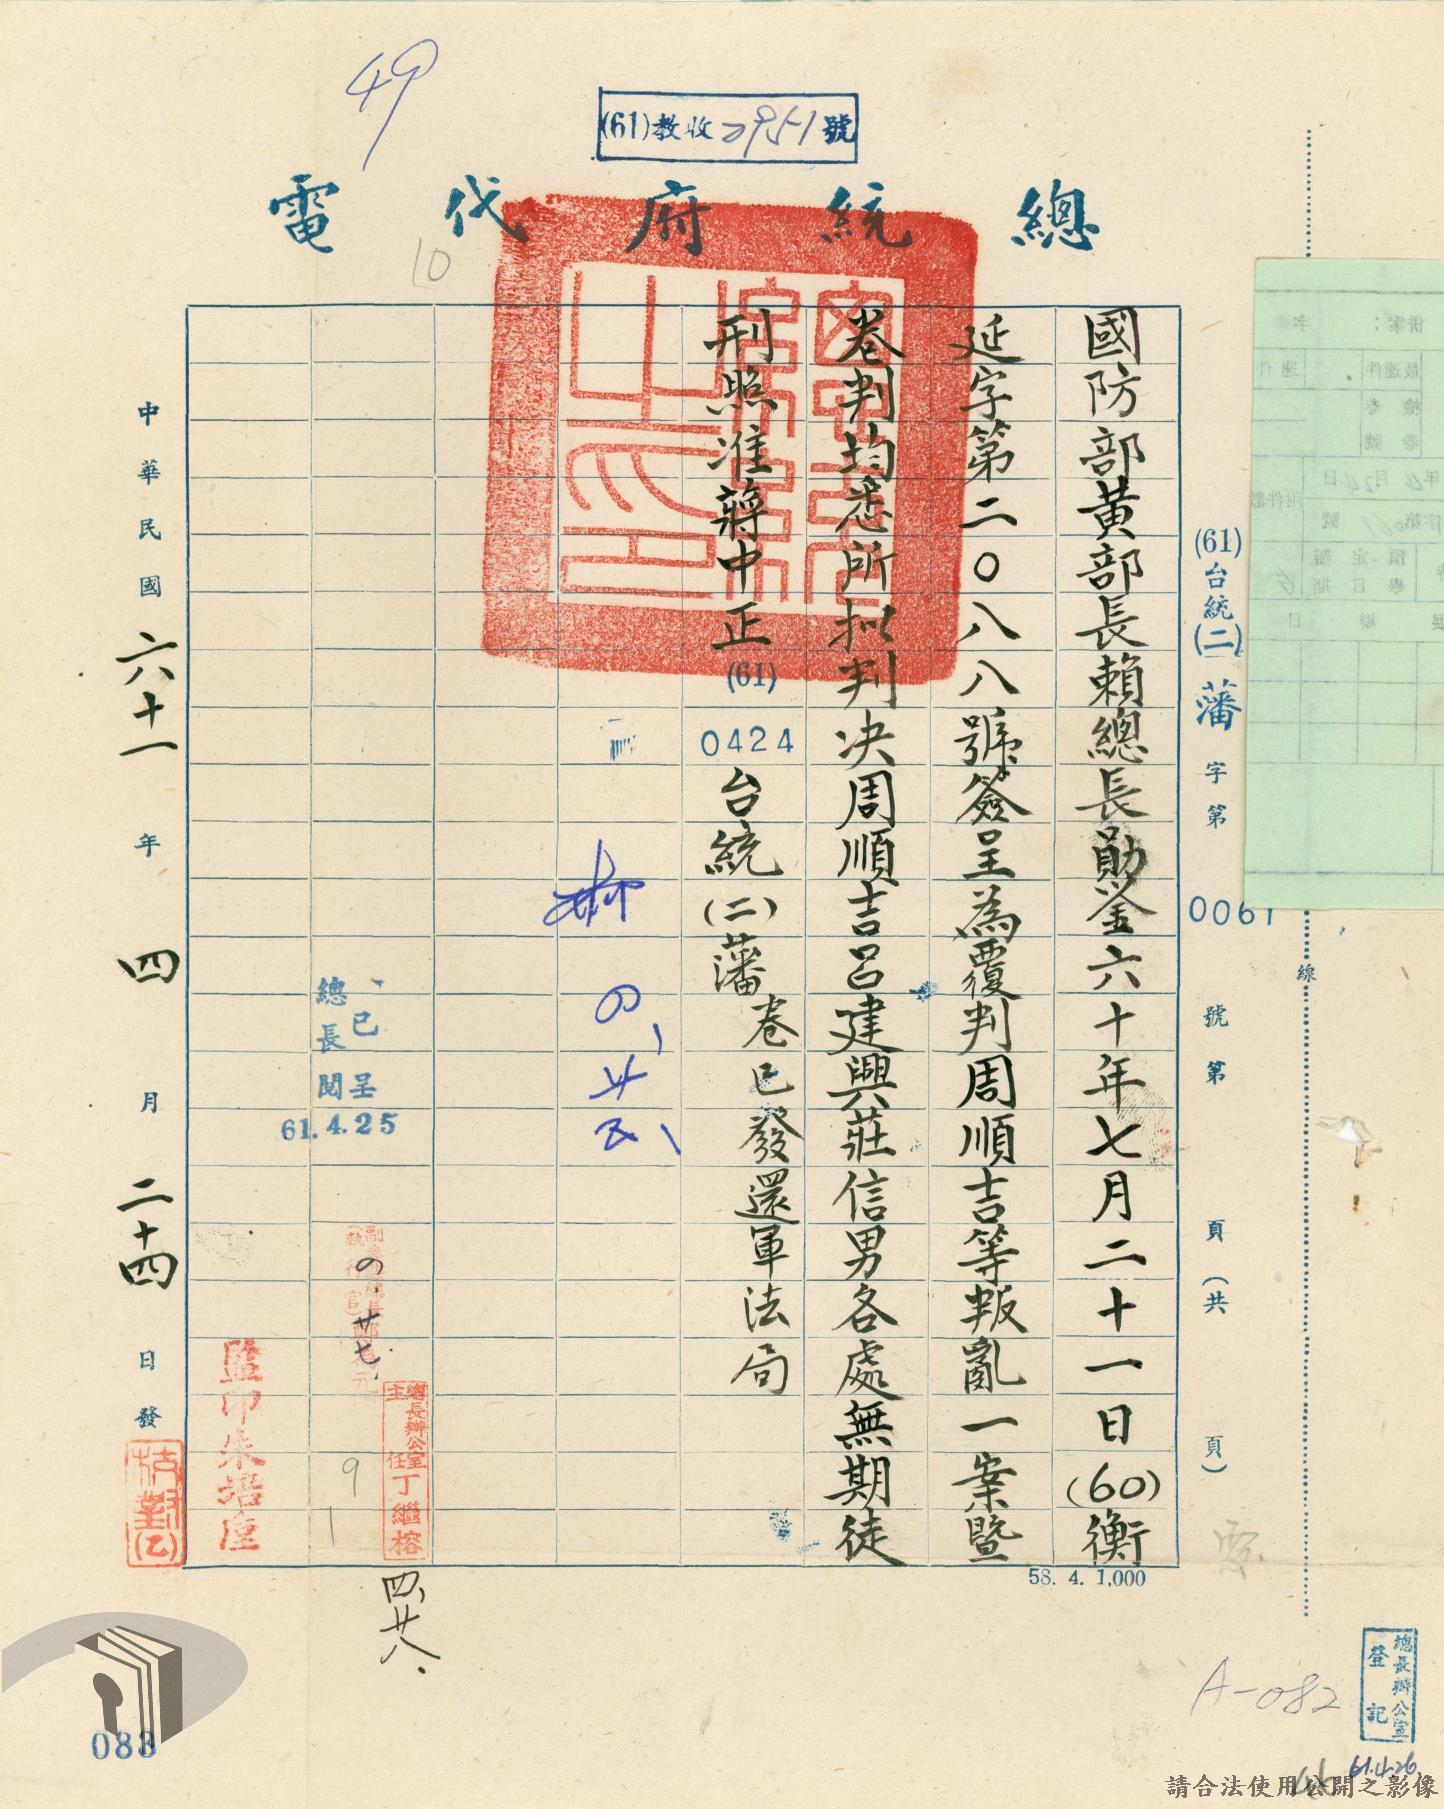 49
(61)教收2951號
總統府代電
10
(61)台統(二)藩字第0061號第 頁(共 頁)
線
國防部黃部長賴總長勛鑒六十年七月二十一日(60)衡
延字第二○八八號簽呈為覆判周順吉等叛亂一案暨
卷判均悉所拟判決周順吉呂建興莊信男各處無期徒
刑照准蔣中正(61)0424台統(二)藩
卷已發還軍法局
四、廿五、
已呈
總長閱
61.4.25
四.廿七.
總長辦公室
主任丁繼榕
四、廿八、
9
1
監印朱培垕
中華民國六十一年四月二十四日發
校對(乙)
58. 4. 1,000
A-082
總長辦公室
登記
61.4.26.
083
請合法使用公開之影像